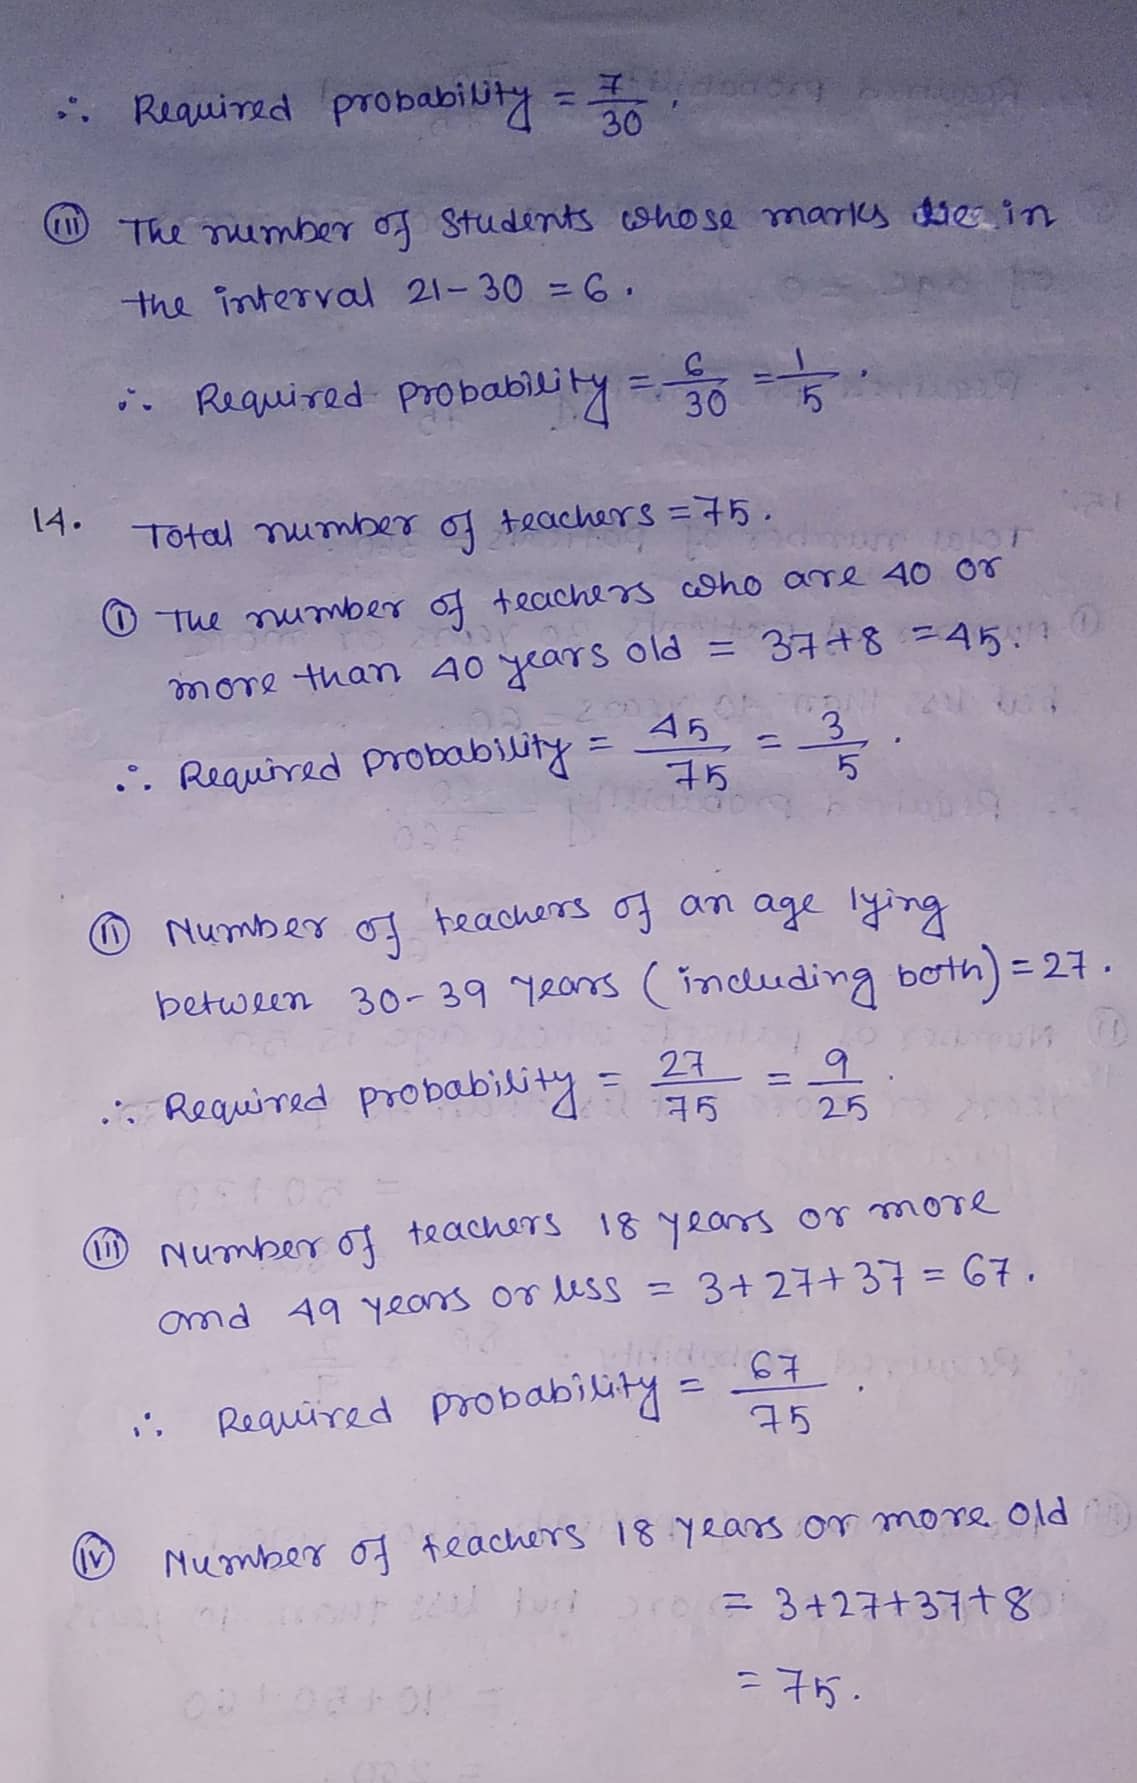 ∴ Required probability = 7/30.
(iii) The number of Students whose marks lie in
the interval 21-30 = 6.
∴ Required probability = 6/30 = 1/5.
14. Total number of teachers = 75.
(i) The number of teachers who are 40 or
more than 40 years old = 37+8 = 45.
∴ Required probability = 45/75 = 3/5.
(ii) Number of teachers of an age lying
between 30-39 years (including both) = 27.
∴ Required probability = 27/75 = 9/25.
(iii) Number of teachers 18 years or more
and 49 years or less = 3+27+37 = 67.
∴ Required probability = 67/75.
(iv) Number of teachers 18 years or more old
= 3+27+37+8
= 75.